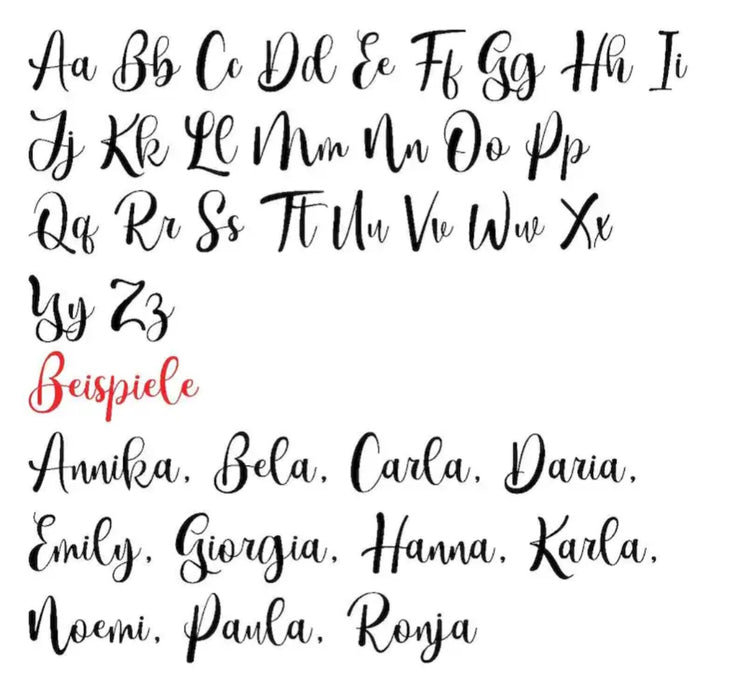 Aa Bb Cc Dd Ee Ff Gg Hh Ii
Jj Kk Ll Mm Nn Oo Pp
Qq Rr Ss Tt Uu Vv Ww Xx
Yy Zz
Beispiele
Annika, Bela, Carla, Daria,
Emily, Giorgia, Hanna, Karla,
Noemi, Paula, Ronja